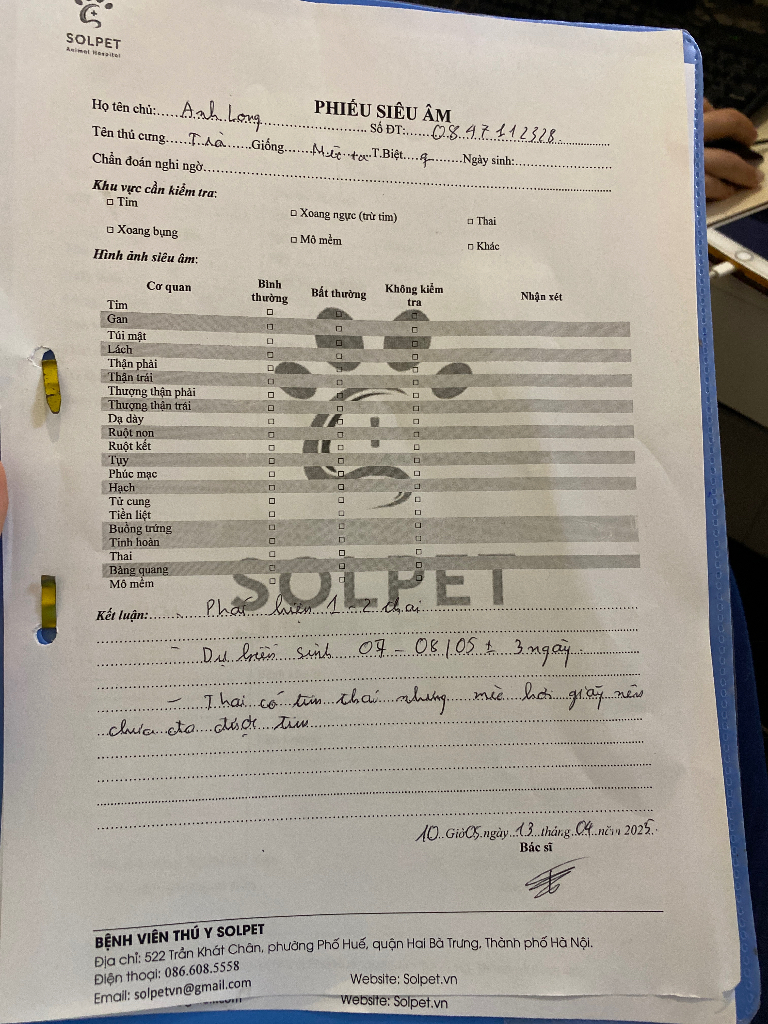 SOLPET
Animal Hospital
PHIẾU SIÊU ÂM
Họ tên chủ: Anh Long Số ĐT: 0847112328
Tên thú cưng Trà Giống Mèo ta T.Biệt ♀ Ngày sinh:
Chẩn đoán nghi ngờ
Khu vực cần kiểm tra:
□ Tim □ Xoang ngực (trừ tim) □ Thai
□ Xoang bụng □ Mô mềm □ Khác
Hình ảnh siêu âm:
Cơ quan Bình thường Bất thường Không kiểm tra Nhận xét
Tim □ □ □
Gan □ □ □
Túi mật □ □ □
Lách □ □ □
Thận phải □ □ □
Thận trái □ □ □
Thượng thận phải □ □ □
Thượng thận trái □ □ □
Dạ dày □ □ □
Ruột non □ □ □
Ruột kết □ □ □
Tụy □ □ □
Phúc mạc □ □ □
Hạch □ □ □
Tử cung □ □ □
Tiền liệt □ □ □
Buồng trứng □ □ □
Tinh hoàn □ □ □
Thai □ □ □
Bàng quang □ □ □
Mô mềm □ □ □
SOLPET
Kết luận: Phát hiện 1-2 thai
- Dự kiến sinh 07 - 08/05 ± 3 ngày
- Thai có tim thai nhưng mèo hơi giãy nên
chưa đo được tim
10 Giờ 05 ngày 13 tháng 04 năm 2025
Bác sĩ
BỆNH VIÊN THÚ Y SOLPET
Địa chỉ: 522 Trần Khát Chân, phường Phố Huế, quận Hai Bà Trưng, Thành phố Hà Nội.
Điện thoại: 086.608.5558
Email: solpetvn@gmail.com Website: Solpet.vn
Website: Solpet.vn